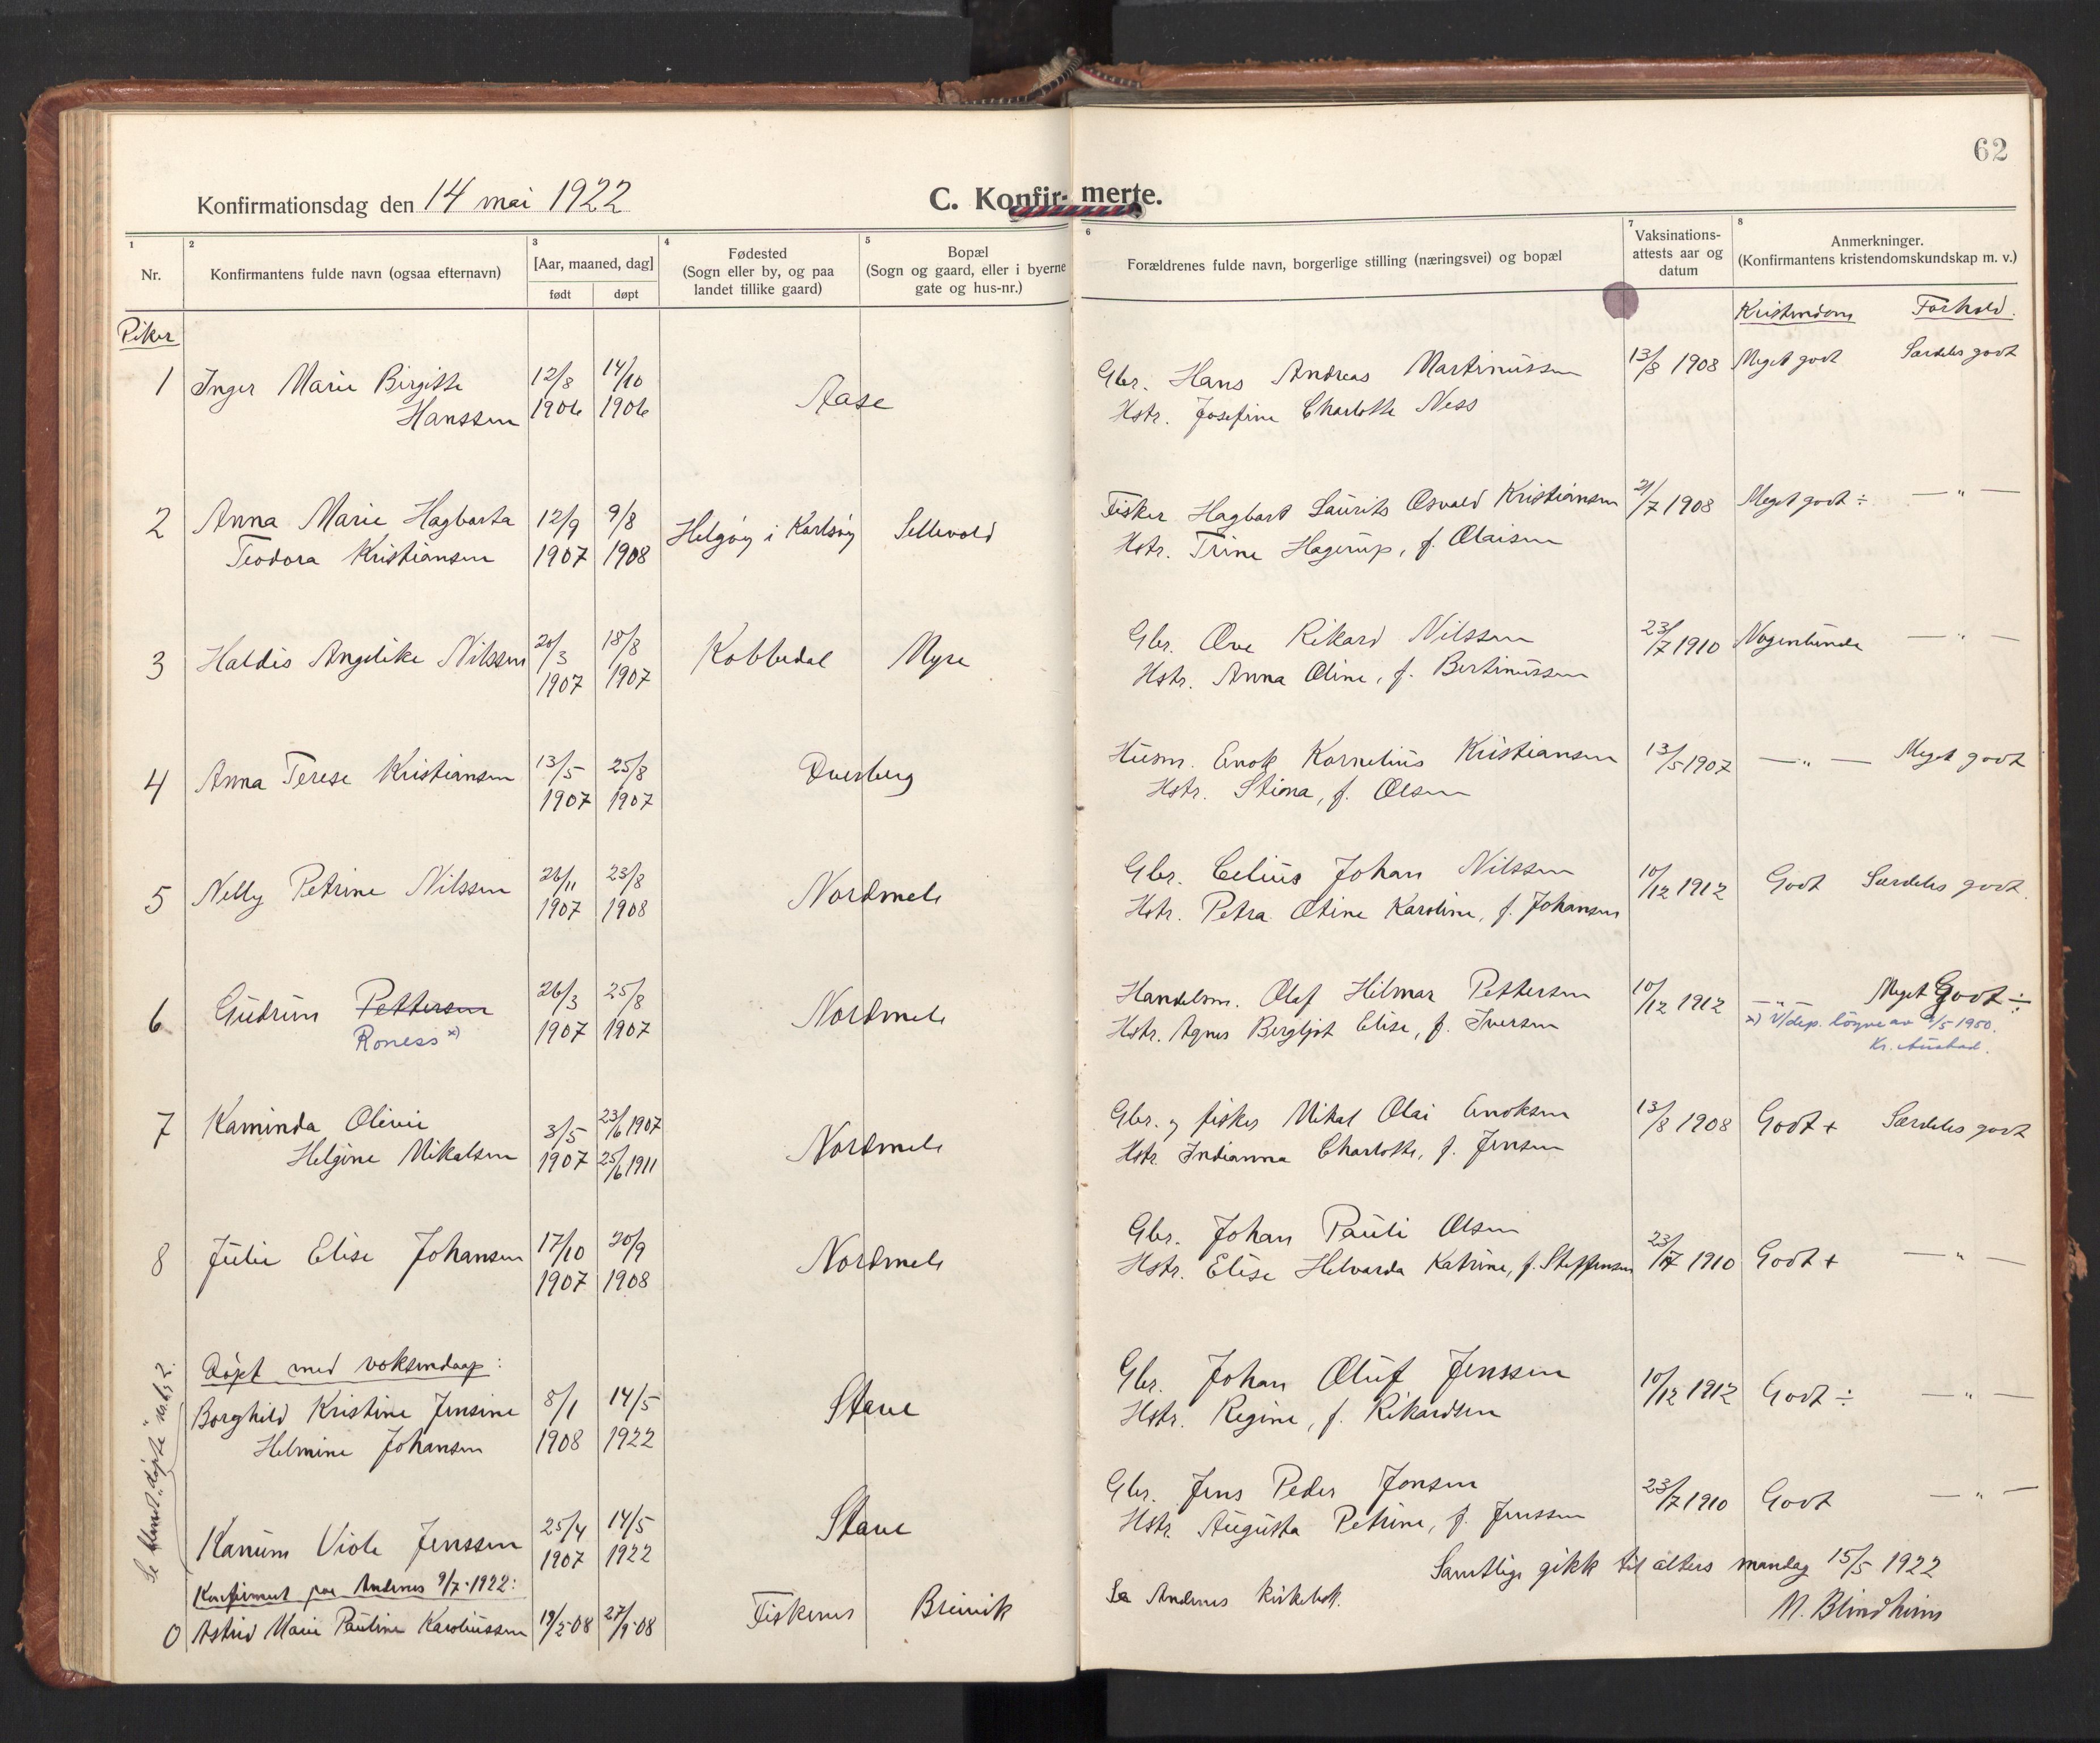 62
Konfirmationsdag den 14 mai 1922
C. Konfir- merte.
1
Nr.
2
Konfirmantens fulde navn (ogsaa efternavn)
3
[Aar, maaned, dag]
født
døpt
4
Fødested
(Sogn eller by, og paa
landet tillike gaard)
5
Bopæl
(Sogn og gaard, eller i byerne
gate og hus-nr.)
6
Forældrenes fulde navn, borgerlige stilling (næringsvei) og bopæl
7
Vaksinations-
attests aar og
datum
8
Anmerkninger.
(Konfirmantens kristendomskundskap m. v.)
Kristendom Forhold.
Piker
1 Inger Marie Birgitte 12/8 14/10 Aase Gbr. Hans Andreas Martinussen 13/8 1908 Meget godt Særdeles godt
Hanssen 1906 1906 Hstr. Josefine Charlotte Ness
2 Anna Marie Hagbarta 12/9 9/8 Helgøy i Karlsøy Sellevold Fisker Hagbart Laurits Osvald Kristiansen 21/7 1908 Meget godt ÷ — " —
Teodora Kristiansen 1907 1908 Hstr. Trine Hagerup, f. Olaisen
3 Haldis Angelike Nilssen 20/3 18/8 Kobbedal Myre Gbr. Ove Rikard Nilssen 23/7 1910 Nogenlunde — " —
1907 1907 Hstr. Anna Oline, f. Bertinussen
4 Anna Terese Kristiansen 13/5 25/8 Dverberg Husm. Enok Kornelius Kristiansen 13/5 1907 — " — Meget godt
1907 1907 Hstr. Stina, f. Olsen
5 Nelly Petrine Nilssen 26/11 23/8 Nordmele Gbr. Celius Johan Nilssen 10/12 1912 Godt Særdeles godt.
1907 1908 Hstr. Petra Otine Karoline, f. Johansen
6 Gudrun Pettersen 26/3 25/8 Nordmele Handelsm. Olaf Hilmar Pettersen 10/12 1912 — " — Meget Godt ÷
Roness x) 1907 1907 Hstr. Agnes Bergljot Elise, f. Iversen
x) V/dep. løyve av /5 1950.
Kr. Austad.
7 Kaminda Olivie 3/5 23/6 1907 Nordmele Gbr. og fisker Mikal Olai Enoksen 13/8 1908 Godt + Særdeles godt
Helgine Mikalsen 1907 25/6 1911 Hstr. Indianna Charlotte, f. Jensen
8 Julie Elise Johansen 17/10 20/9 Nordmele Gbr. Johan Pauli Olsen 23/7 1910 Godt + — " —
1907 1908 Hstr. Elise Helvarda Katrine, f. Steffensen
Døpt med voksendaap:
Borghild Kristine Jensine 8/1 14/5 Stave Gbr. Johan Oluf Jenssen 10/12 1912 Godt ÷ — " —
Helmine Johansen 1908 1922 Hstr. Regine, f. Rikardsen
Kanum Viola Jenssen 25/4 14/5 Stave Gbr. Jens Peder Jonsen 23/7 1910 Godt — " —
1907 1922 Hstr. Augusta Petrine, f. Jenssen
Samtlige gikk til alters mandag 15/5 1922
M. Blindheim
Konfirmert paa Andenes 9/7-1922:
0 Astrid Marie Pauline Karoliussen 19/2-08 27/9-08 Fiskenes Breivik Se Andenes kirkebok.